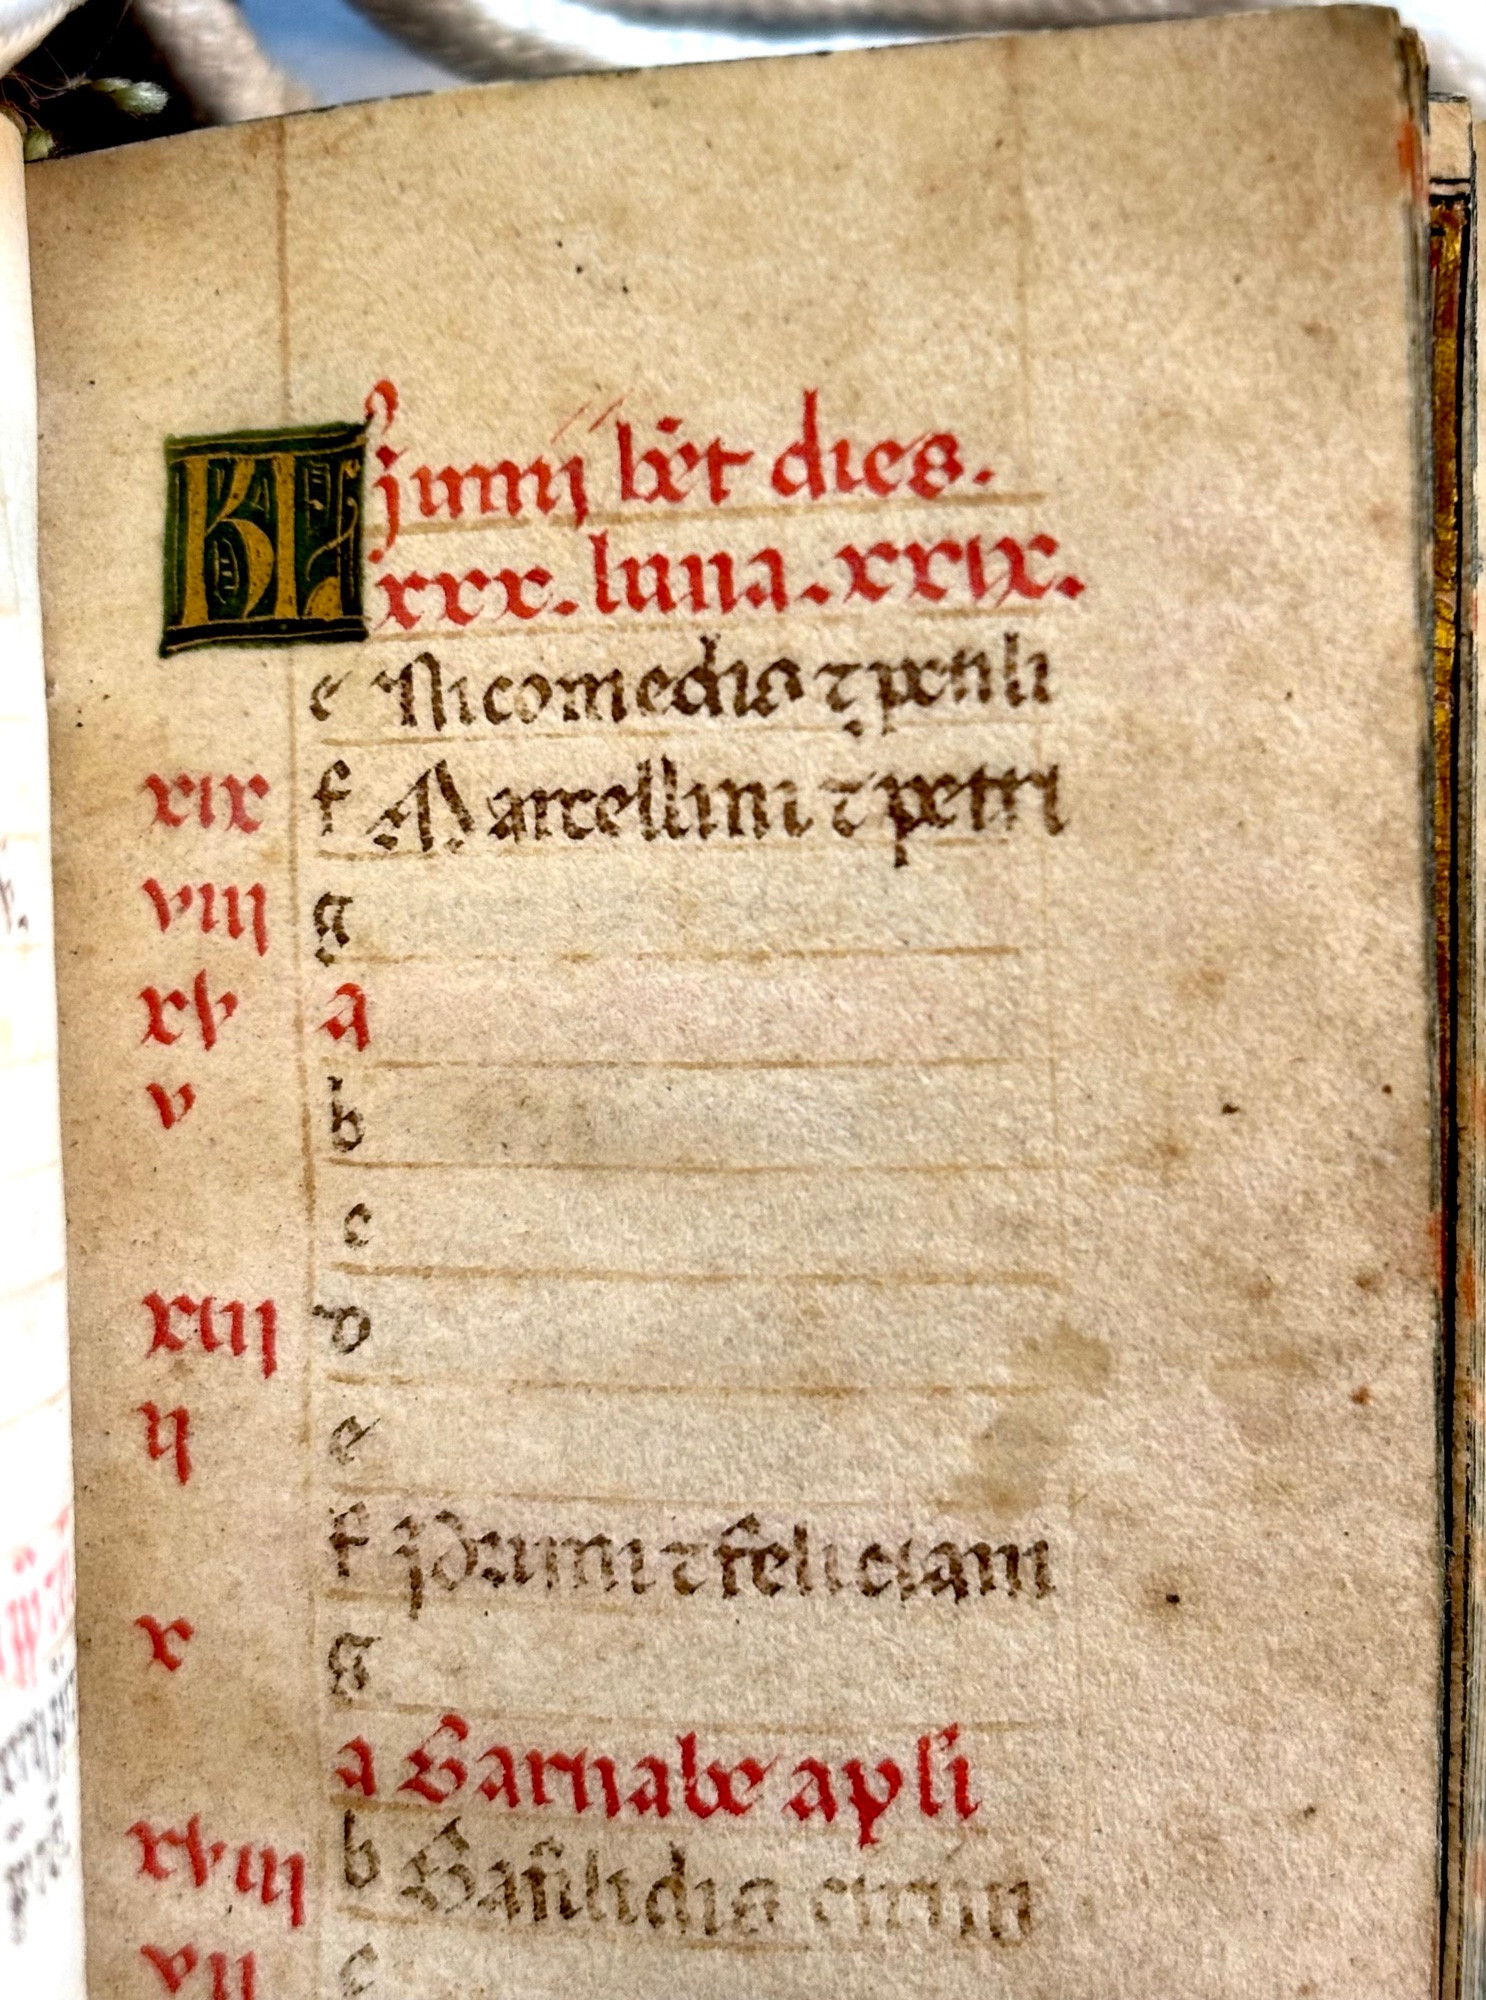 KL Junij hēt dies.
xxx. luna. xxix.
e Nicomedis ⁊ petili
xix f Marcellini ⁊ petri
viii g
xv a
v b
c
xiii d
ij e
f Primi ⁊ feliciani
x g
a Barnabe apli
xviii b Basilidis cirini
vii c